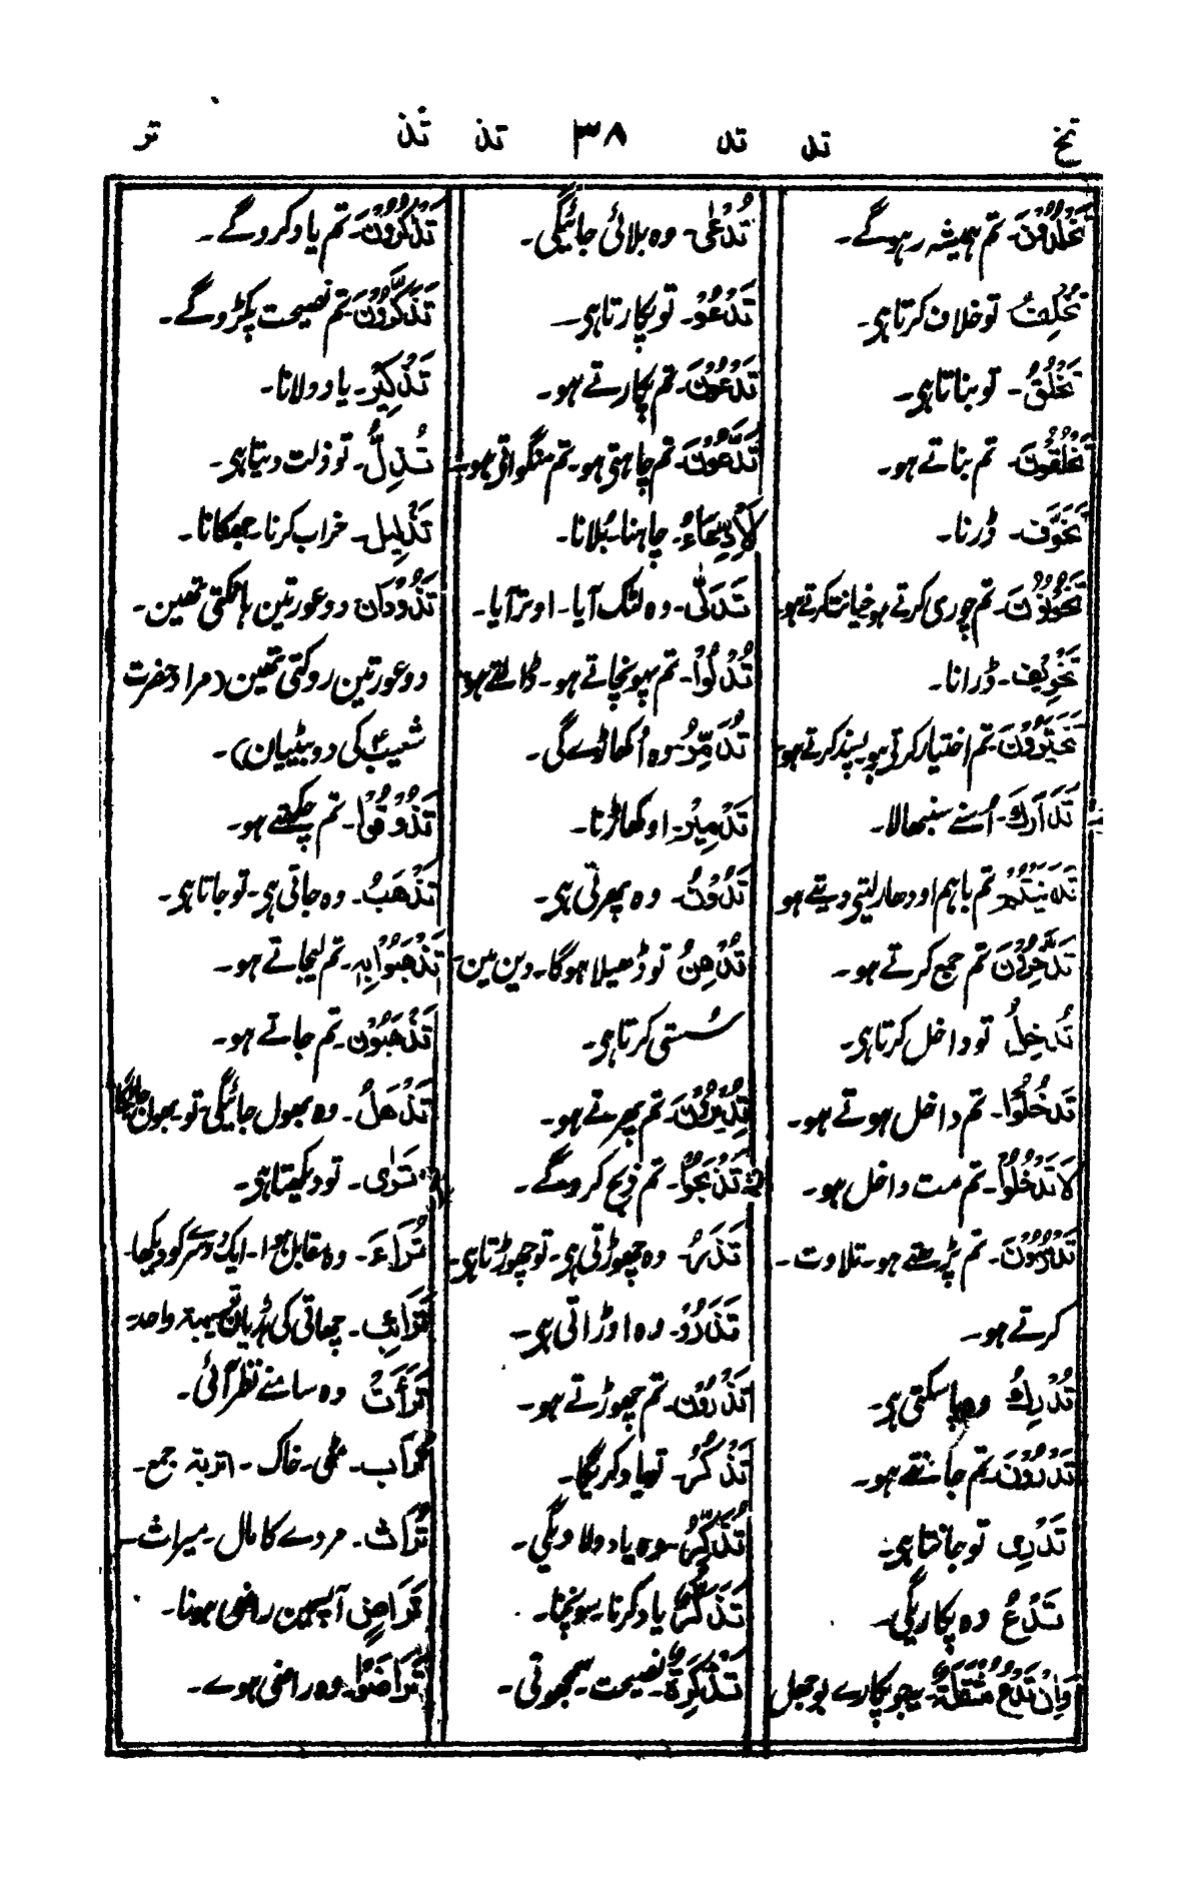 تخ تد تد ۳۸ تذ تذ تر
تَخْلُدُوْنَ۔ تم ہمیشہ رہوگے۔
تُخْلِفُ۔ تو خلاف کرتا ہی۔
تَخْلُقُ۔ تو بناتا ہی۔
تَخْلُقُوْنَ۔ تم بناتے ہو۔
تَخَوُّف۔ ڈرنا۔
تَخُوْنُوْنَ۔ تم چوری کرتے ہو خیانت کرتے ہو۔
تَخْوِیْف۔ ڈرانا۔
تَخَیَّرُوْنَ۔ تم اختیار کرتے ہو پسند کرتے ہو۔
تَدَارَكَ۔ اُسنے سنبھالا۔
تَدَایَنْتُمْ۔ تم باہم اودھار لیتے دیتے ہو
تَدَّخِرُوْنَ تم جمع کرتے ہو۔
تُدْخِلُ تو داخل کرتا ہی۔
تَدْخُلُوْا۔ تم داخل ہوتے ہو۔
لَا تَدْخُلُوْا۔ تم مت داخل ہو۔
تَدْرُسُوْنَ۔ تم پڑھتے ہو۔ تلاوت۔
کرتے ہو۔
تُدْرِكُ وہ پا سکتی ہی۔
تَدْرُوْنَ۔ تم جانتے ہو۔
تَدْرِی تو جانتا ہی۔
تَدْعُ وہ پکاریگی۔
وَاِنْ تَدْعُ مُثْقَلَةٌ۔ جو پکارے بوجھل
تُدْعٰی۔ وہ بلائی جائیگی۔
تَدْعُوْ۔ تو پکارتا ہی۔
تَدْعُوْنَ۔ تم پکارتے ہو۔
تَدَّعُوْنَ۔ تم چاہتی ہو۔ تم منگواتی ہو۔
اَلْاِدِّعَاءُ۔ چاہنا۔ بُلانا۔
تَدَلّٰی۔ وہ لٹک آیا۔ اوترآیا۔
تُدْلُوْا۔ تم پہونچاتے ہو۔ ڈالتے ہو
تُدَمِّرُ۔ وہ اُکھاڑے گی۔
تَدْمِیْر۔ اوکھاڑنا۔
تَدُوْرُ۔ وہ پھرتی ہی۔
تُدْهِنُ تو ڈھیلا ہوگا۔ دین مین۔
سُستی کرتا ہی۔
تُدِیْرُوْنَ۔ تم پھرتے ہو۔
تَذْبَحُوْا۔ تم ذبح کروگے۔
تَذَرُ۔ وہ چھوڑتی ہی۔ تو چھوڑتا ہی۔
تَذْرُوْ۔ وہ اوڑاتی ہی۔
تَذَرُوْن۔ تم چھوڑتے ہو۔
تَذْکُرُ۔ تو یاد کریگا۔
تُذَکِّرُ۔ وہ یاد دلا ویگی۔
تَذَکُّر یاد کرنا۔ سونچنا۔
تَذْکِرَةٌ۔ نصیحت۔ سمجھوتی۔
تَذْکُرُوْنَ۔ تم یاد کروگے۔
تَذَکَّرُوْنَ۔ تم نصیحت پکڑوگے۔
تَذْکِیْر۔ یاد دلانا۔
تُذِلُّ۔ تو ذلت دیتا ہی۔
تَذْلِیل۔ خراب کرنا۔ جھکانا۔
تَذُوْدَان دو عورتین ہانکتی تھین۔
دو عورتین روکتی تھین (مراد حضرت
شعیبؑ کی دو بیٹیان)۔
تَذُوْقُوْا۔ تم چکھتے ہو۔
تَذْهَبُ۔ وہ جاتی ہی۔ تو جاتا ہی۔
تَذْهَبُوْا بِہٖ۔ تم لیجاتے ہو۔
تَذْهَبُوْن۔ تم جاتے ہو۔
تَذْهَلُ۔ وہ بھول جائیگی۔ تو بھول جائیگا
تَرٰی۔ تو دیکھتا ہی۔
تَرَاءَ۔ وہ مقابل ہوا۔ ایک دوسرے کو دیکھا۔
تَرَائِب۔ چھاتی کی ہڈیان تریبۃ واحد۔
تَرَأَتْ وہ سامنے نظر آئی۔
تُرَاب۔ مٹی۔ خاک۔ اتربۃ جمع۔
تُرَاث۔ مردے کا مال۔ میراث۔
تَرَاضٍ آپسمین راضی ہونا۔
تَرَاضَوْا۔ وہ راضی ہوے۔